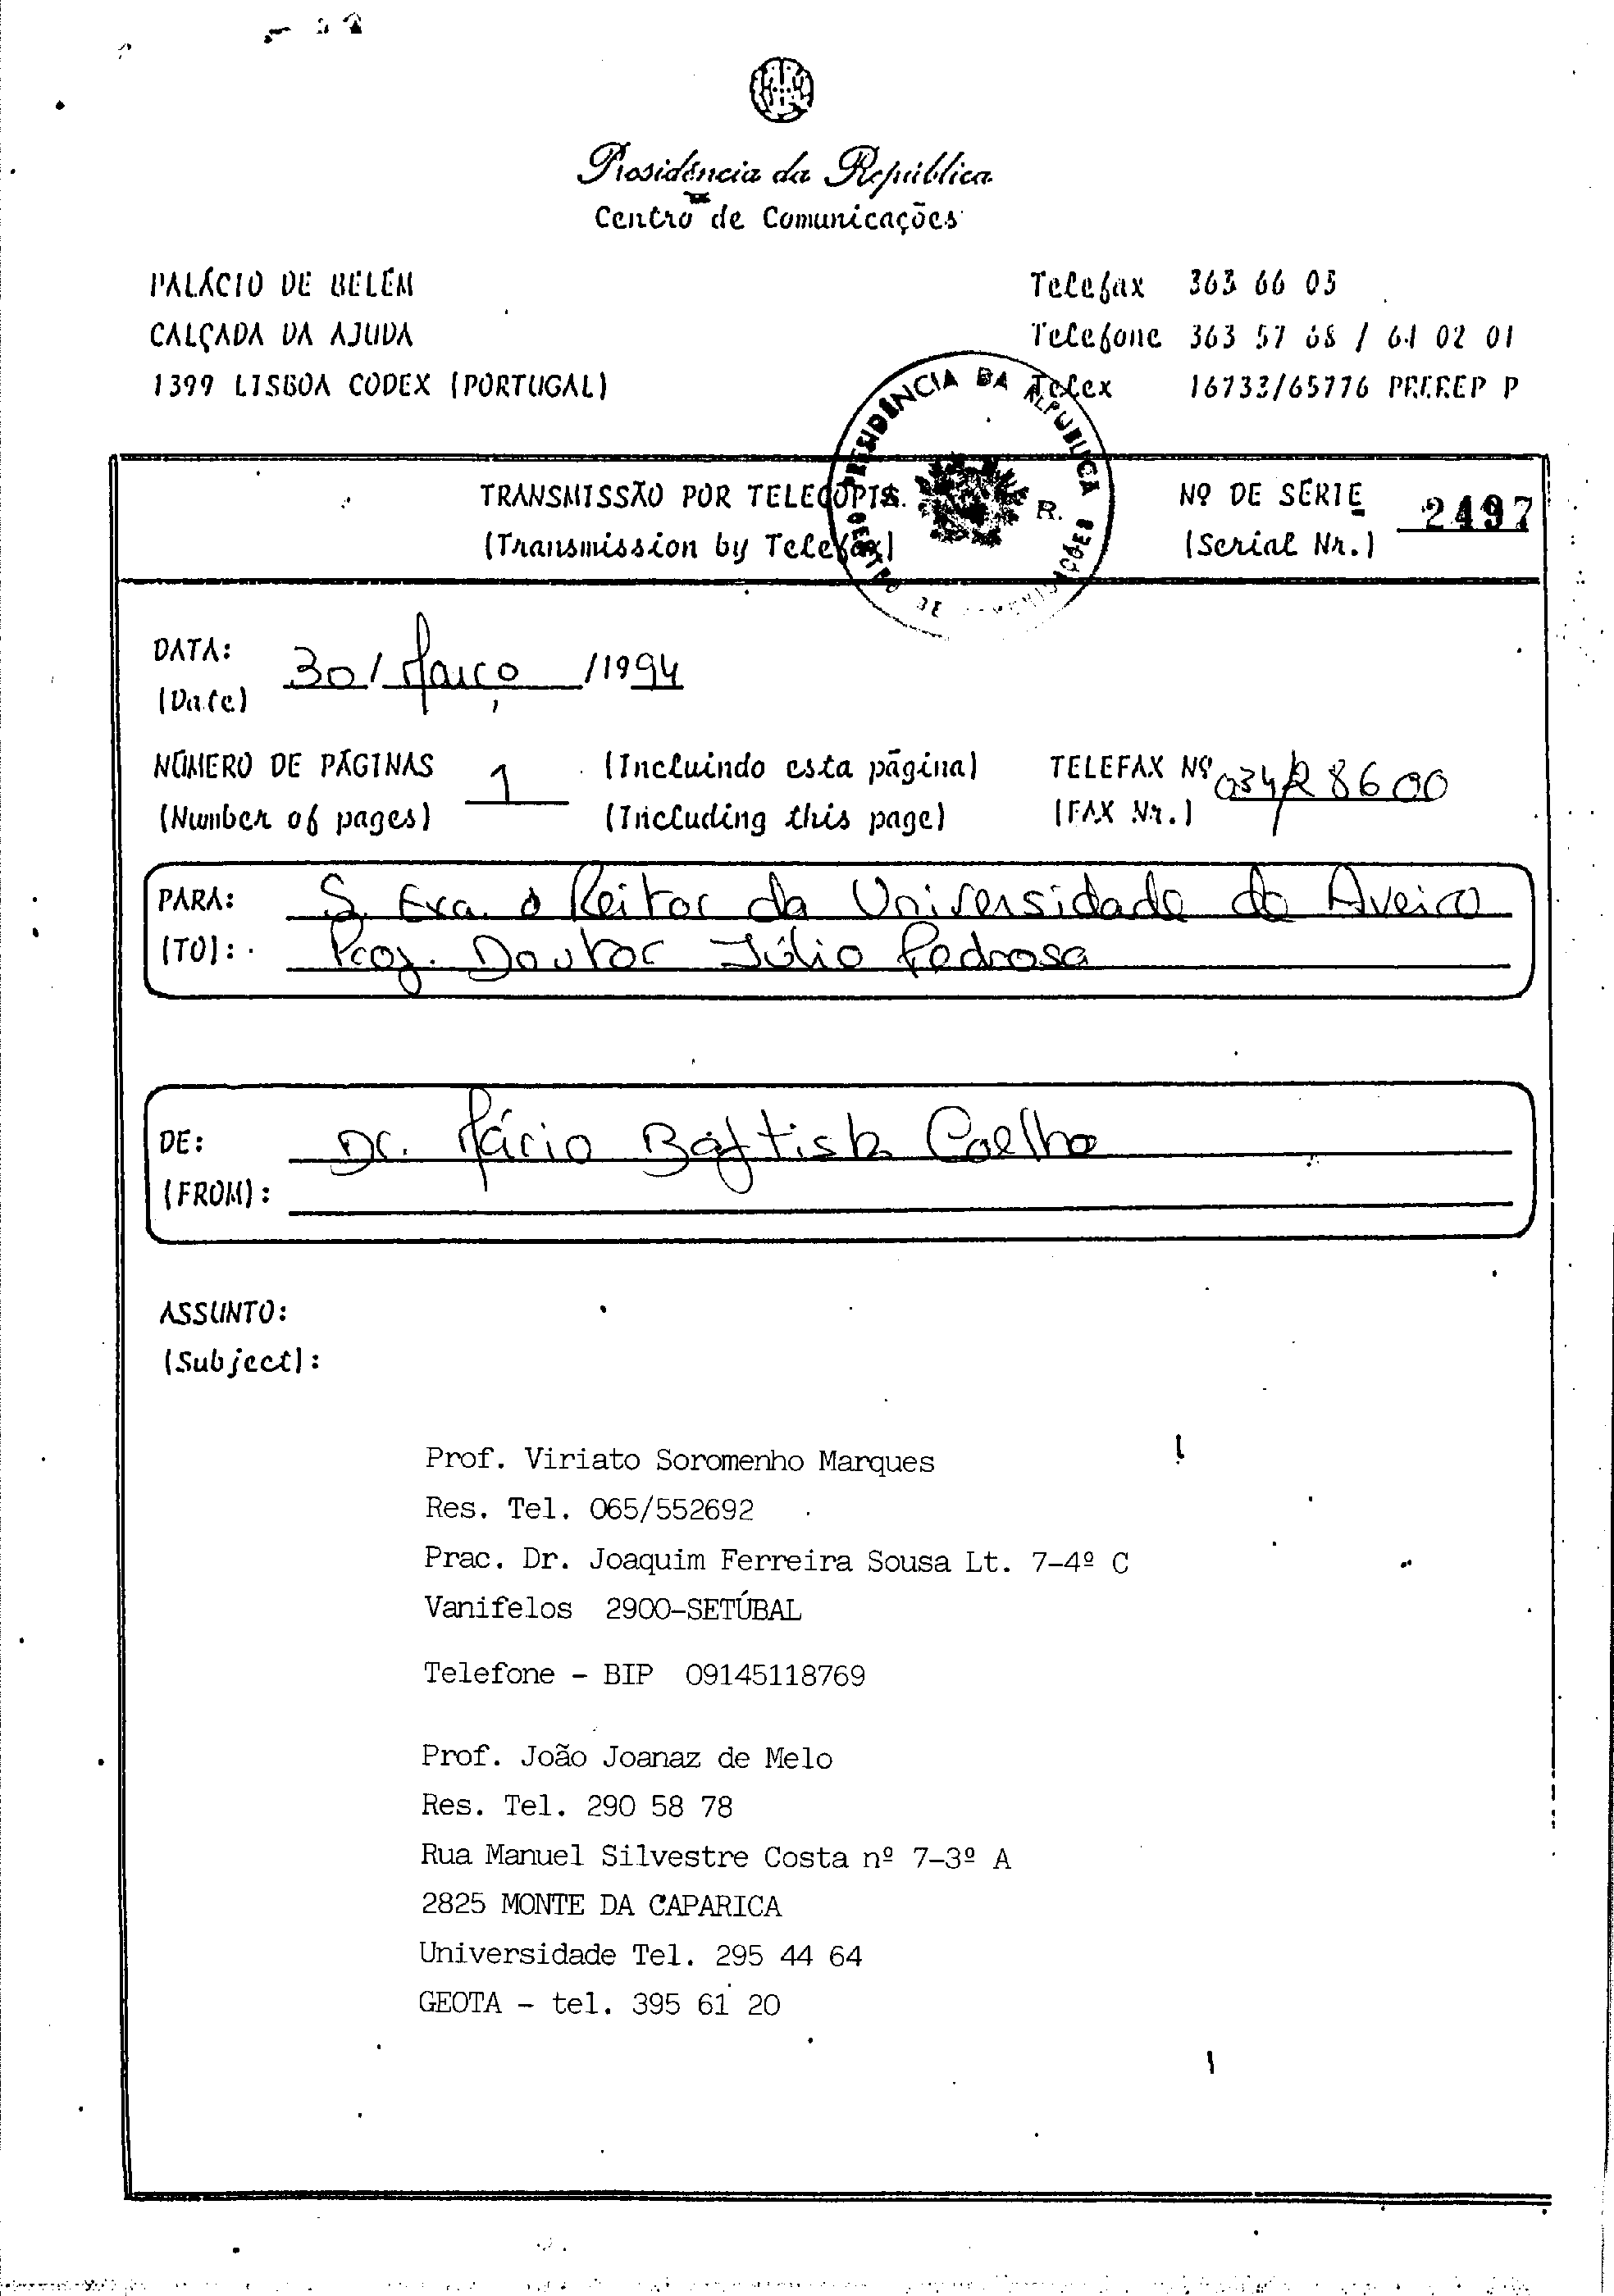 Presidência da República
Centro de Comunicações
PALÁCIO DE BELÉM
CALÇADA DA AJUDA
1399 LISBOA CODEX (PORTUGAL)
Telefax 363 66 03
Telefone 363 57 68 / 64 02 01
Telex 16733/65776 PREREP P
PRESIDÊNCIA DA REPÚBLICA
R.
TRANSMISSÃO POR TELECÓPIA
(Transmission by Telefax)
Nº DE SÉRIE 2497
(Serial Nr.)
DATA: 30/Março/1994
(Date)
NÚMERO DE PÁGINAS 1 (Incluindo esta página) TELEFAX Nº 034/28600
(Number of pages) (Including this page) (FAX Nr.)
PARA: S. Exa. o Reitor da Universidade de Aveiro
(TO): Prof. Doutor Júlio Pedrosa
DE: Dr. Mário Baptista Coelho
(FROM):
ASSUNTO:
(Subject):
Prof. Viriato Soromenho Marques
Res. Tel. 065/552692
Prac. Dr. Joaquim Ferreira Sousa Lt. 7-4º C
Vanifelos 2900-SETÚBAL
Telefone - BIP 09145118769
Prof. João Joanaz de Melo
Res. Tel. 290 58 78
Rua Manuel Silvestre Costa nº 7-3º A
2825 MONTE DA CAPARICA
Universidade Tel. 295 44 64
GEOTA - tel. 395 61 20